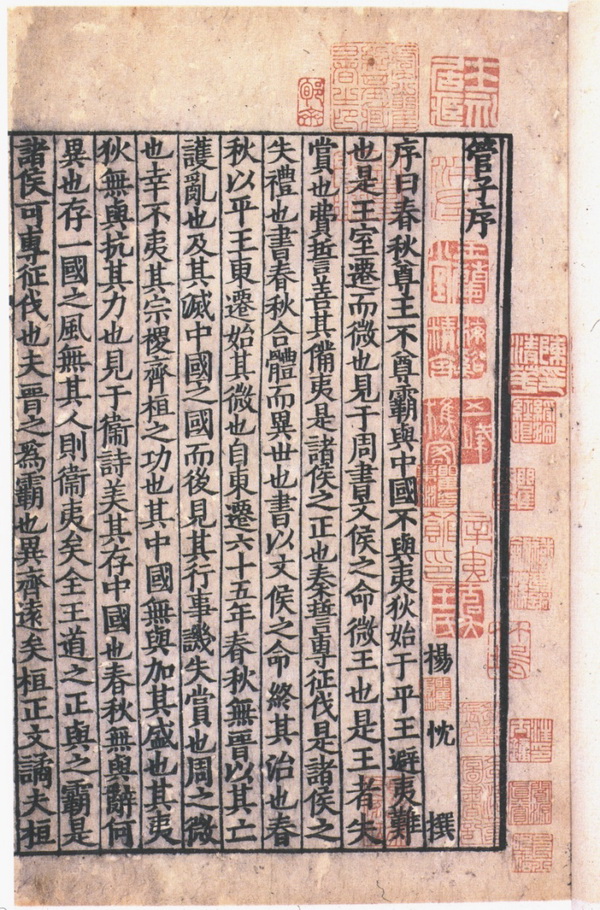 管子序
楊忱撰
序曰春秋尊王不尊霸與中國不與夷狄始于平王避夷難
也是王室遷而微也見于周書文侯之命微王也是王者失
賞也費誓善其備夷是諸侯之正也秦誓專征伐是諸侯之
失禮也書春秋合體而異世也書以文侯之命終其治也春
秋以平王東遷始其微也自東遷六十五年春秋無晉以其亡
護亂也及其滅中國之國而後見其行事譏失賞也周之微
也幸不夷其宗稷齊桓之功也其中國無與加其盛也其夷
狄無與抗其力也見于衞詩美其存中國也春秋無與辭何
異也存一國之風無其人則衞夷矣全王道之正與之霸是
諸侯可專征伐也夫晉之爲霸也異齊遠矣桓正文譎夫桓